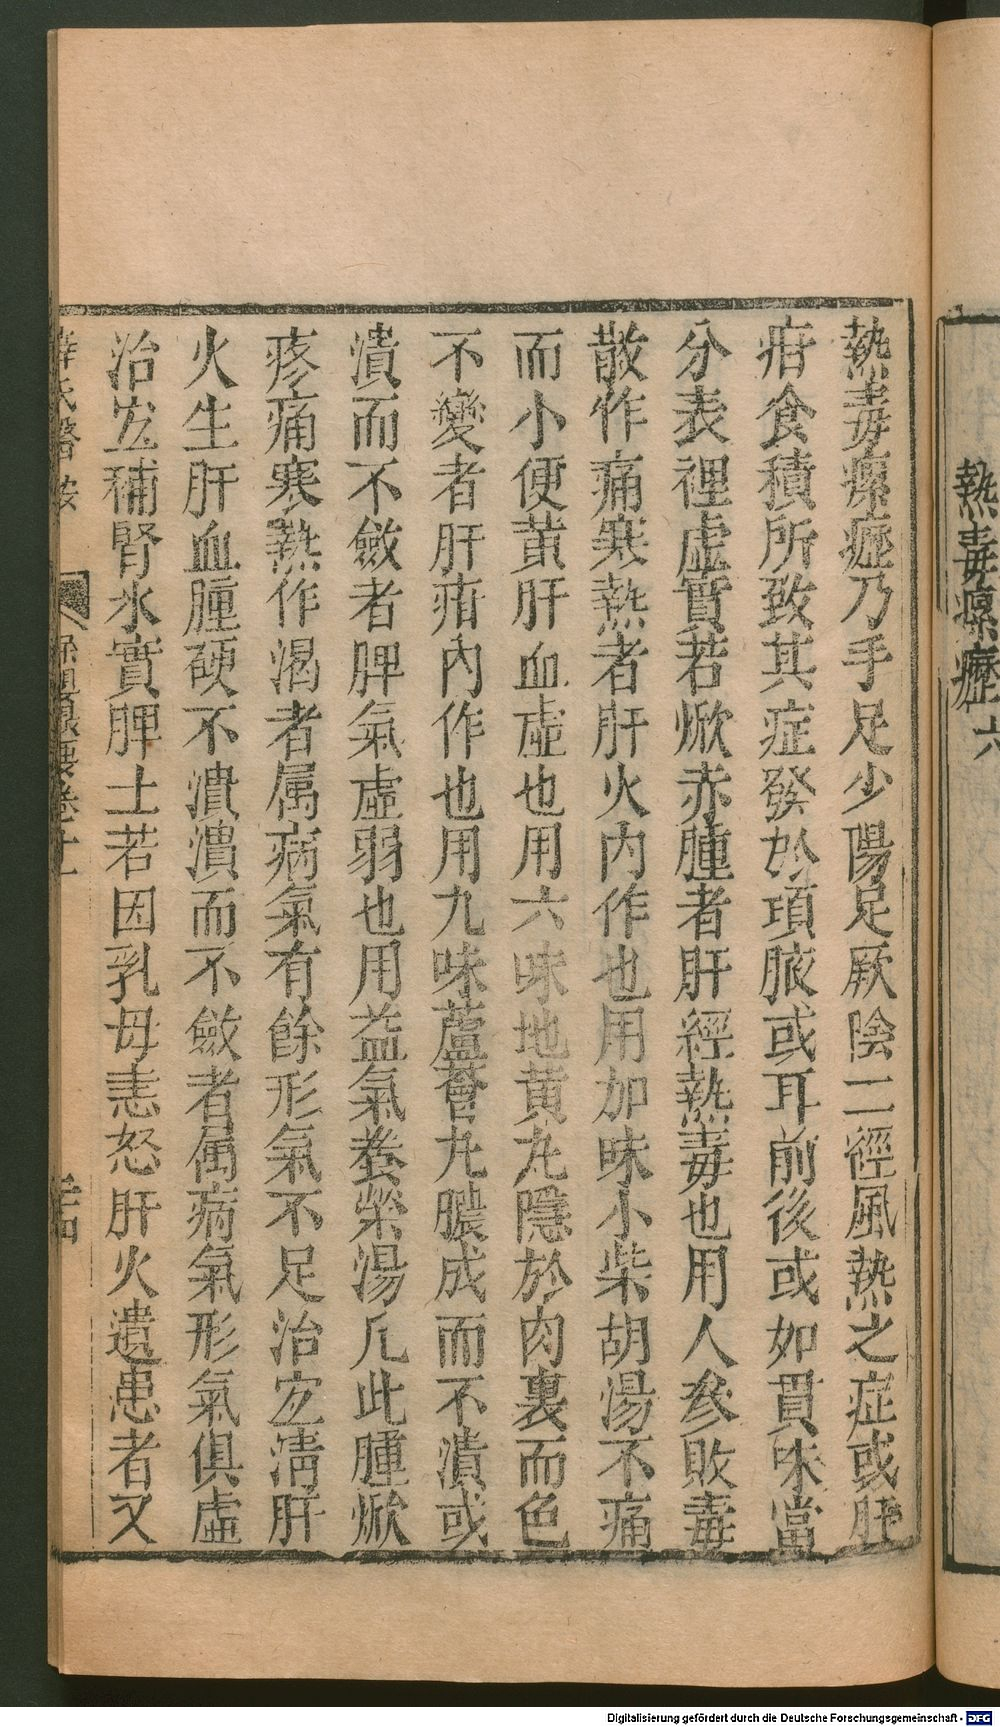 熱毒瘰癧六
熱毒瘰癧乃手足少陽足厥陰二徑風熱之症或肝
疳食積所致其症發於項腋或耳前後或如貫味當
分表裡虛實若焮赤腫者肝經熱毒也用人參敗毒
散作痛寒熱者肝火內作也用加味小柴胡湯不痛
而小便黃肝血虛也用六味地黃丸隱於肉裏而色
不變者肝疳內作也用九味蘆薈丸膿成而不潰或
潰而不斂者脾氣虛弱也用益氣養榮湯凡此腫焮
疼痛寒熱作渴者属病氣有餘形氣不足治宐淸肝
火生肝血腫硬不潰潰而不斂者属病氣形氣俱虛
治宐補腎水實脾土若因乳母恚怒肝火遺患者又
薛氏醫按 保嬰撮要卷十一 二十四
Digitalisierung gefördert durch die Deutsche Forschungsgemeinschaft - DFG